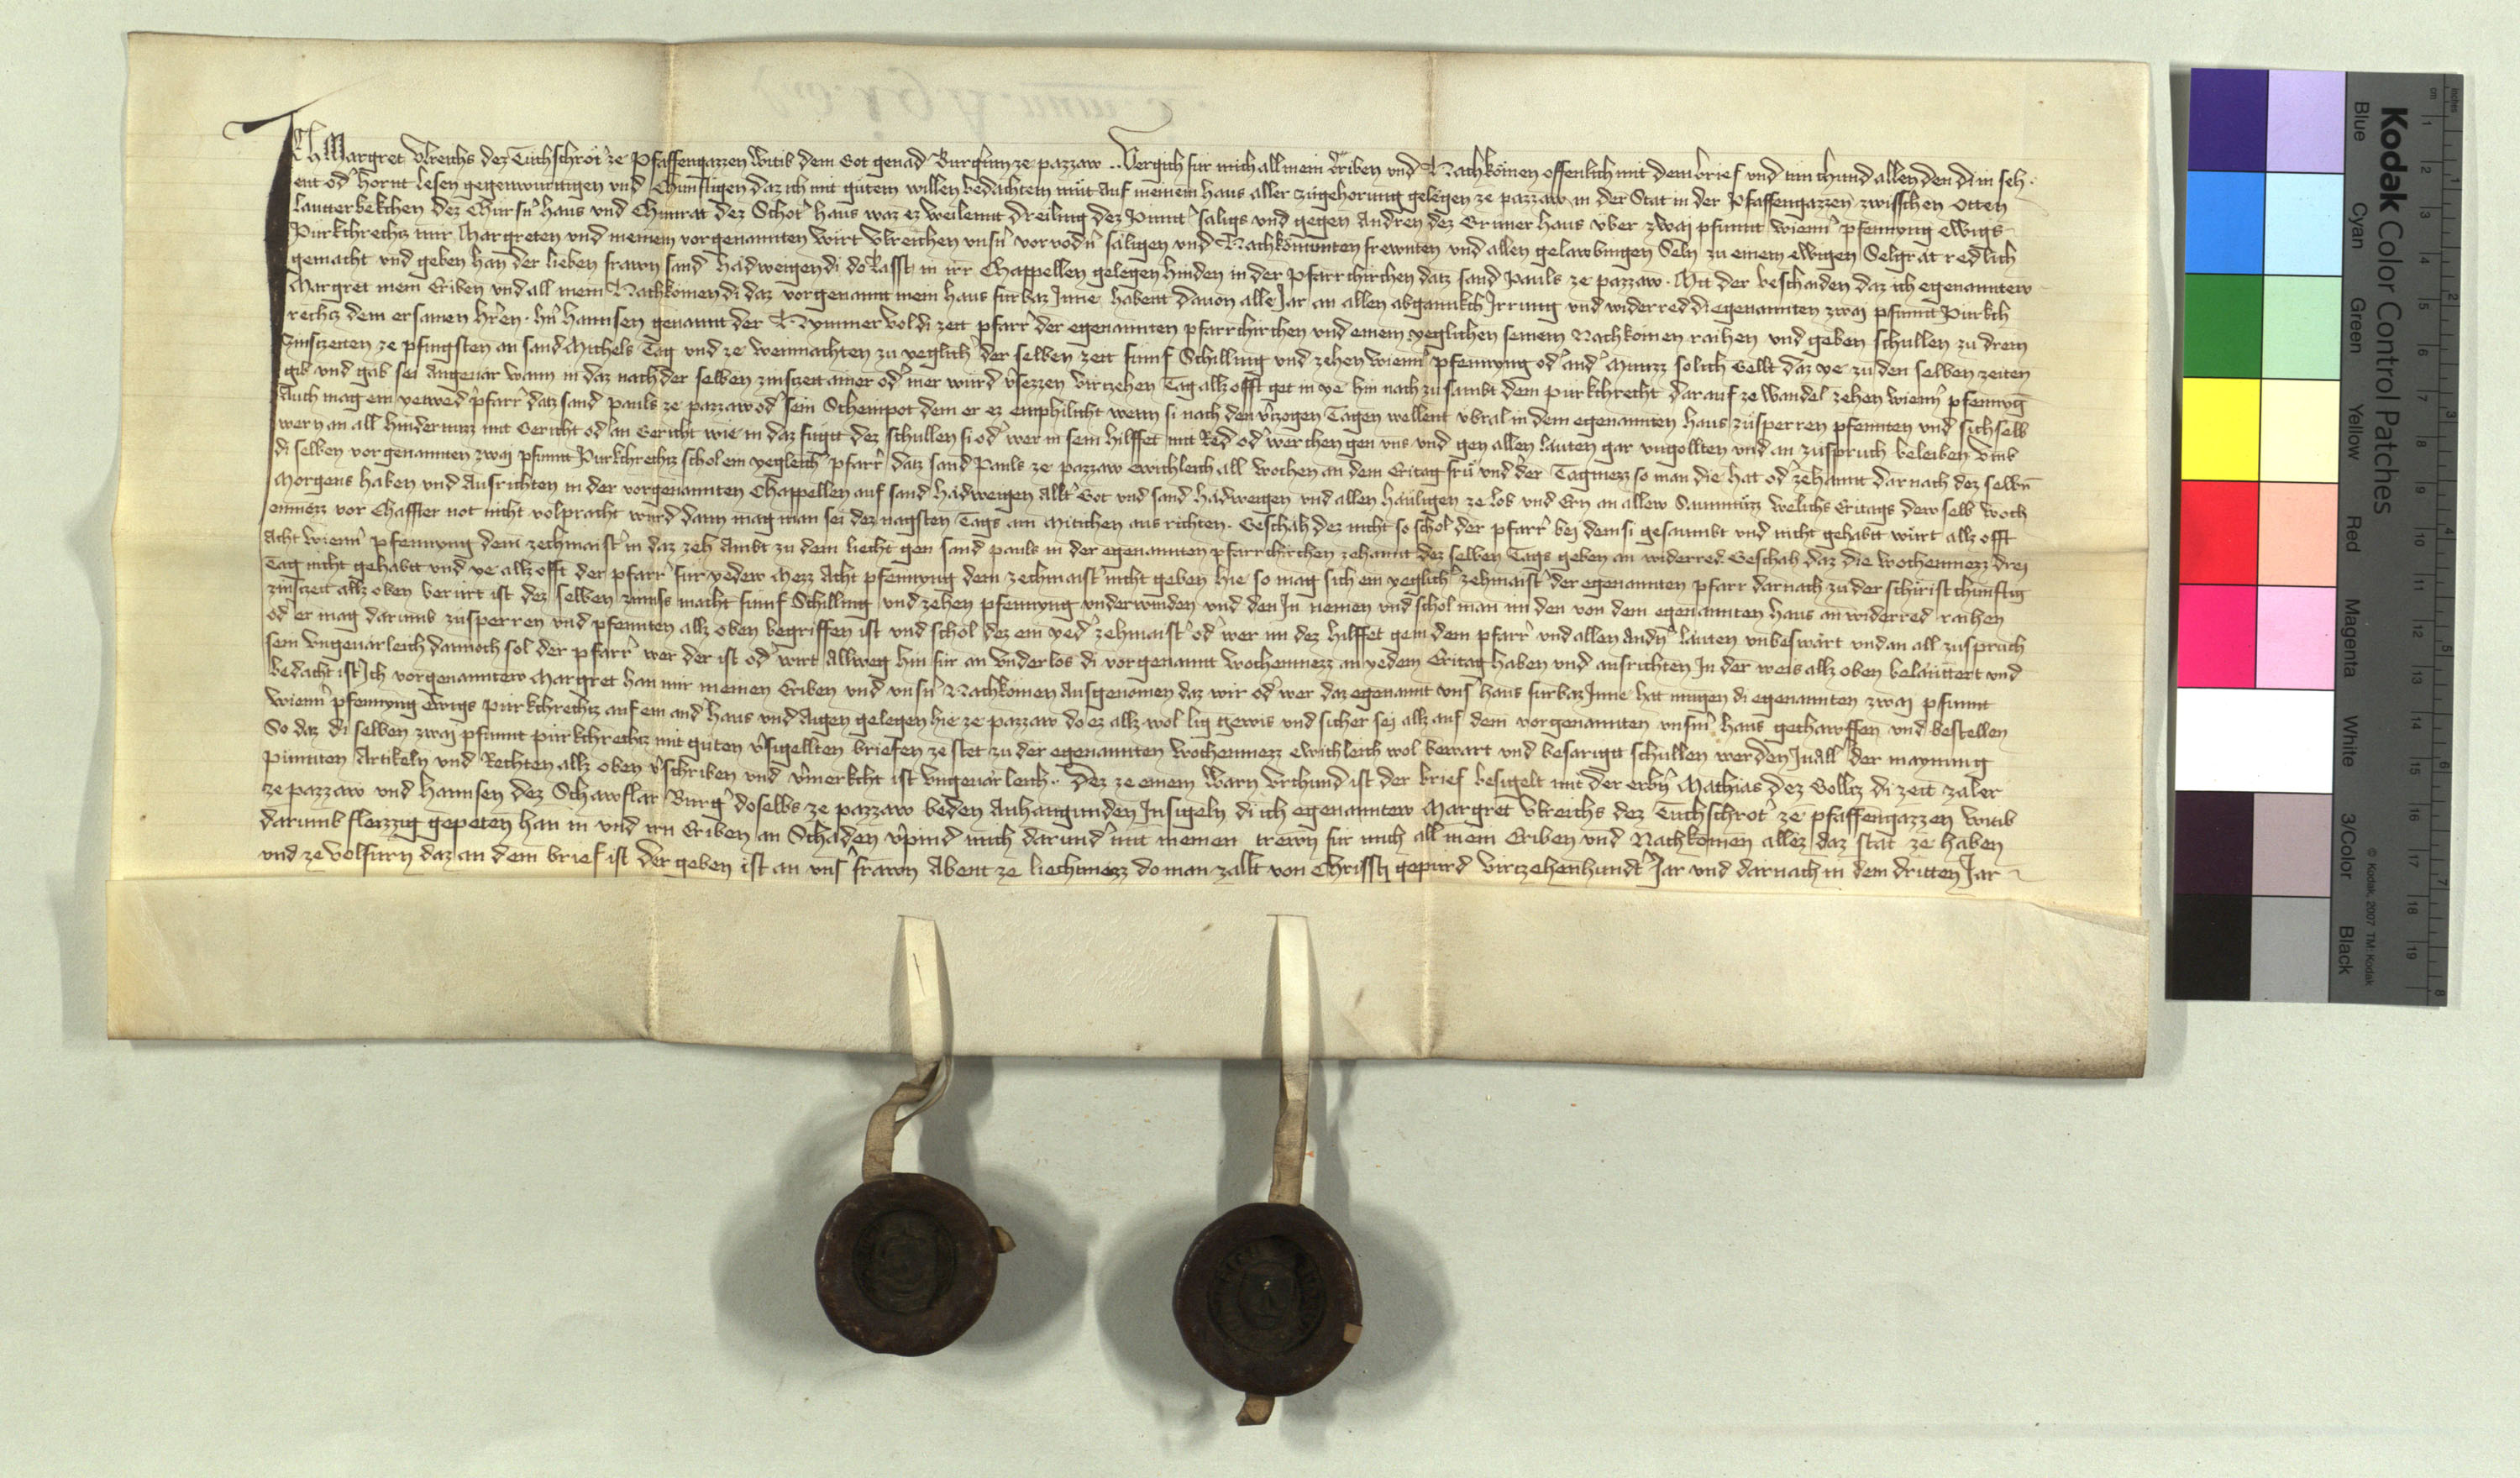 Ich Margret Ulreichs dez Tuchschroͤt' ze Pfaffengazzen Witib dem Got genad Burg'inn ze pazzaw .. Vergich fur mich all mein Eriben und Nachkomen offenlich mit dem brief und tun chund allen den di in seh
ent od' hornt lesen gegenwurttigen und Chunftigen daz ich mit gutem willen bedachtem mut auf meinem haus aller zugehorung gelegen ze pazzaw in der Stat in der Pfaffengazzen zwisschen Otten
Lautterbekchen dez Chursn' haus und Chunrat dez Schot' haus waz ez weilennt Dreiling dez saligs und gegen andren dez Gruner haus uber zwaj pfunnt wienn' pfennyng ewigs
Purkchrechtz mir Margreten und meinem vorgenannten wirt Ulreichen unsn' vorvodn' saligen und Nachkomunten frewnten und allen gelawbingen Seln zu einem ewigen Selgrat redlich
gemacht und geben han der lieben frawn sand Hadweigen di do Rasst in irr Chappellen gelegen hinden in der Pfarrchirchen datz sand Pauls ze pazzaw. Mit der beschaiden daz ich egenanntew
Margret mein Eriben und all mein Nachkomen di daz vorgenannt mein haus furbaz Inne habent davon alle Jar an allen abgankch Irrung und widerred di egenannten zwaj pfunnt Purkch
rechtz dem ersamen h'ren hn' Hannsen genannt der di zeit pfarr' der egenannten pfarrchirchen und einem yeglichen seinem Nachkomen raihen und geben schullen zu drein
Zinszeiten ze pfingsten an sand Michels Tag und ze weinnachten zu yeglich' der selben zeit funf Schilling und zehen wienn' pfennyng od' and' Munzz solich Gellt daz ye zu den selben zeiten
gib und gab sei angevar wann in daz nach der selben zinszeit ainer od' mer wurd v'sezzen virczehen Tag allz offt get in ye hin nach zu sambt dem purkchrecht darauf ze wandel zehen wienn' pfennyg
Auch mag ein yetwed' pfarr' datz sand pauls ze pazzaw od' sein Scheinpot dem er ez emphilicht wenn si nach den virzegen Tagen wellent ubral in dem egenannten haus zusperren pfennten und sich selb
wern an all hindernuzz mit Gericht od' an Gericht wie in daz fugtt dez schullen si od' wer in sein hilffet mit Red od' werchen gen uns und gen allen lauten gar ungollten und an zuspruch beleiben Umb
di selben vorgenannten zwaj pfunnt Purkchrechtz schol ein yegleich' pfarr' datz sand Pauls ze pazzaw ewichleich all wochen an dem Eritag fru und der Tagmezz so man die hat od' zehannt darnach dez selbn'
Morgens haben und ausrichten in der vorgenannten Chappellen auf sand Hadweigen Allt' Got und sand Hadweigen und allen hailigen ze lob und Ern an allew Saumnuzz welichs Eritags dew selb Woch
enmezz vor Chaffter not nicht volpracht wurd dann mag man sei dez nagsten Tags am Mitichen aus richten. Geschah dez nicht so schol der pfarr' bej dem si gesaumbt und nicht gehabtt wirt allz offt
Acht wienn' pfennyng dem zechmaist' in daz zech Ambt zu dem liecht gen sand pauls in der egenannten pfarrchirchen zehannt dez selben Tags geben an widerred. Geschah daz die wochenmezz drei
Tag nicht gehabtt und ye allz offt der pfarr' fur yedew Mezz Acht pfennyng dem zechmaist' nicht geben hie so mag sich ein yeglich' zechmaist' der egenannten pfarr darnach zu der schirist chunftig
zinszeit allz oben berurt ist dez selben zinnss macht funf Schilling und zehen pfennyng underwinden und den In nemen und schol man im den von dem egenannten haus an widerred raihen
od' er mag darumb zusperren und pfennten allz oben begriffen ist und schol dez ein yed' zehmaist' od' wer im dez hilffet gem dem pfarr' und allen andn' lauten unbeswart und an all zuspruch
sein ungevarleich dannoch sol der pfarr' wer der ist od' wirt Allweg hin fur an Underlos di vorgenannt wochenmezz an yedem Eritag haben und ausrichten In der weis allz oben belauttert und
bedacht ist Ich vorgenanntew Margret han mir meinen Eriben und unsn' Nachkomen ausgenomen daz wir od' wer daz egenannt uns' haus furbaz Inne hat mugen di egenannten zwaj pfunnt
wienn' pfennyng Ewigs purkchrechtz auf ein and' haus und Aigen gelegen hie ze pazzaw do ez allz wol lig gewis und sicher sei allz auf dem vorgenannten unsm' haus gechawffen und bestellen
So daz di selben zwaj pfunnt purkchrechtz mit guten v'sigellten briefen ze stet zu der egenannten wochenmezz ewichleich wol bewart und besarigtt schullen werden In all der maynung
punnten Artikeln und Rechten allz oben v'schriben und v'merkcht ist Ungevarleich .. Dez ze einem Warn Urchund ist der brief besigelt mit der erbn' Mathias dez Gollnz di zeit zaler
ze pazzaw und Hannsen dez Schawflar Burg' doselbs ze pazzaw beden Anhangunden Insigeln di ich egenanntew Margret Ulreichs dez Tuchschrot' ze pfaffengazzen witib
darumb fleizzig gepeten han in und irn Eriben an Schaden v'pind mich darund' mit meinen trewn fur mich all mein Eriben und Nachkomen allez daz stat ze haben
und ze volfurn daz an dem brief ist der geben ist an uns' frawn Abent ze liechtmezz do man zallt von Christj gepurd Virczehenhundt' Jar und darnach in dem dritten Jar
Kodak Color Control Patches
Blue Cyan Green Yellow Red Magenta White 3/Color Black
© Kodak, 2007 TM: Kodak
inches 1 2 3 4 5 6 7 8
cm 1 2 3 4 5 6 7 8 9 10 11 12 13 14 15 16 17 18 19